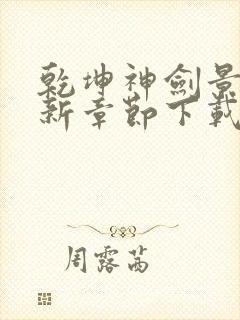 乾坤神劍景
新章節下載
周露茜